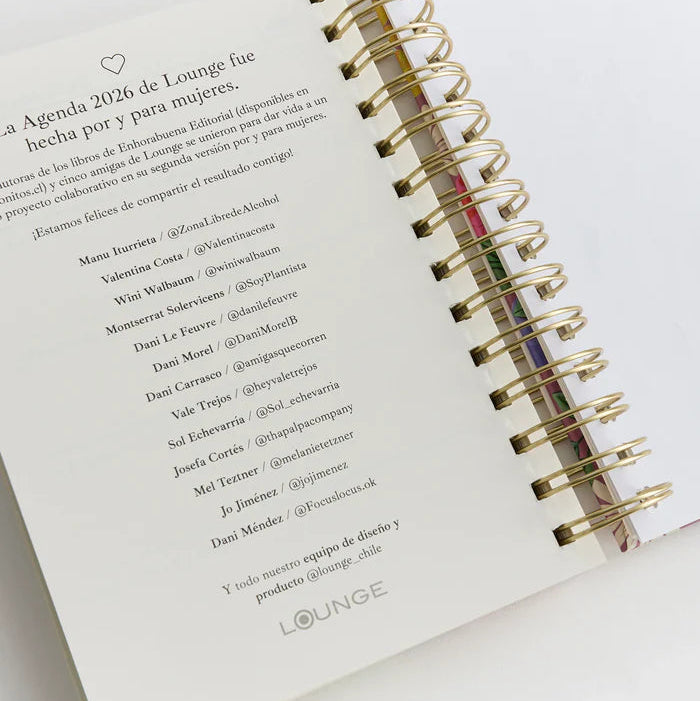 La Agenda 2026 de Lounge fue
hecha por y para mujeres.
autoras de los libros de Enhorabuena Editorial (disponibles en
onitos.cl) y cinco amigas de Lounge se unieron para dar vida a un
proyecto colaborativo en su segunda versión por y para mujeres.
¡Estamos felices de compartir el resultado contigo!
Manu Iturrieta / @ZonaLibredeAlcohol
Valentina Costa / @Valentinacosta
Wini Walbaum / @winiwalbaum
Montserrat Solervicens / @SoyPlantista
Dani Le Feuvre / @danilefeuvre
Dani Morel / @DaniMorelB
Dani Carrasco / @amigasquecorren
Vale Trejos / @heyvaletrejos
Sol Echevarría / @Sol_echevarria
Josefa Cortés / @thapalpacompany
Mel Teztner / @melanietetzner
Jo Jiménez / @jojimenez
Dani Méndez / @Focuslocus.ok
Y todo nuestro equipo de diseño y
producto @lounge_chile
LOUNGE